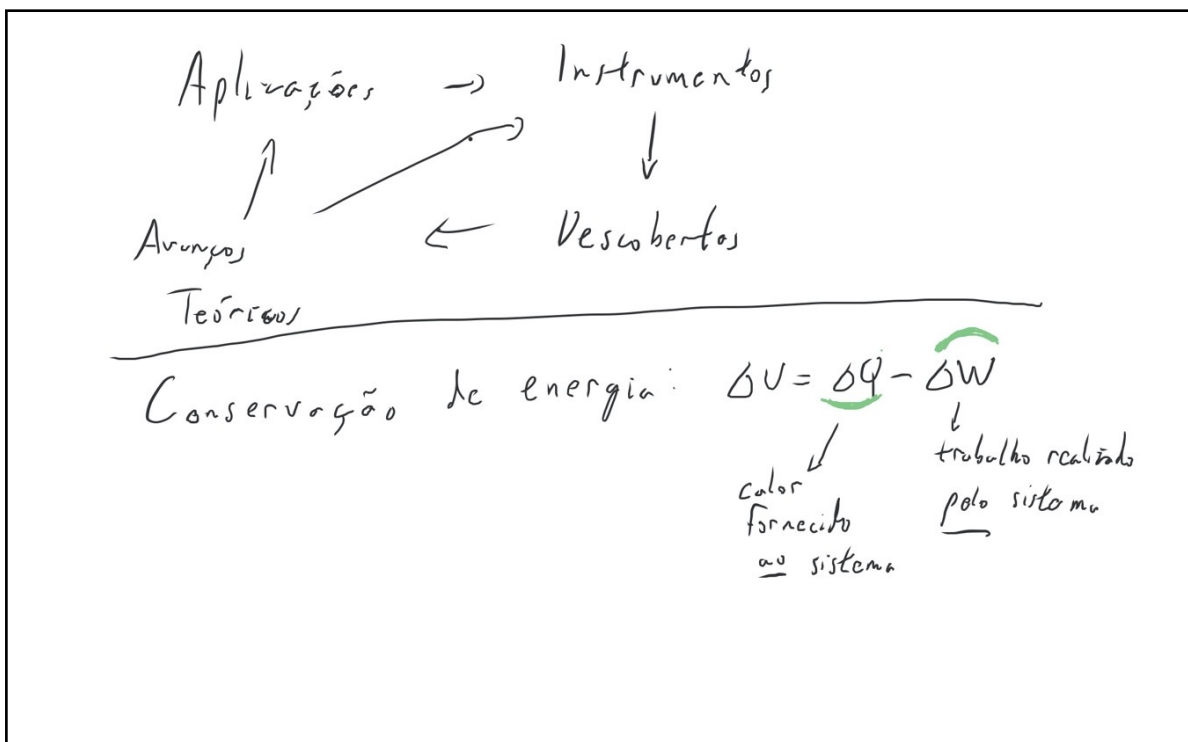 Aplicações → Instrumentos
Avanços ← Descobertas
Teóricos
Conservação de energia: ΔU = ΔQ - ΔW
calor
fornecido
ao sistema
trabalho realizado
pelo sistema